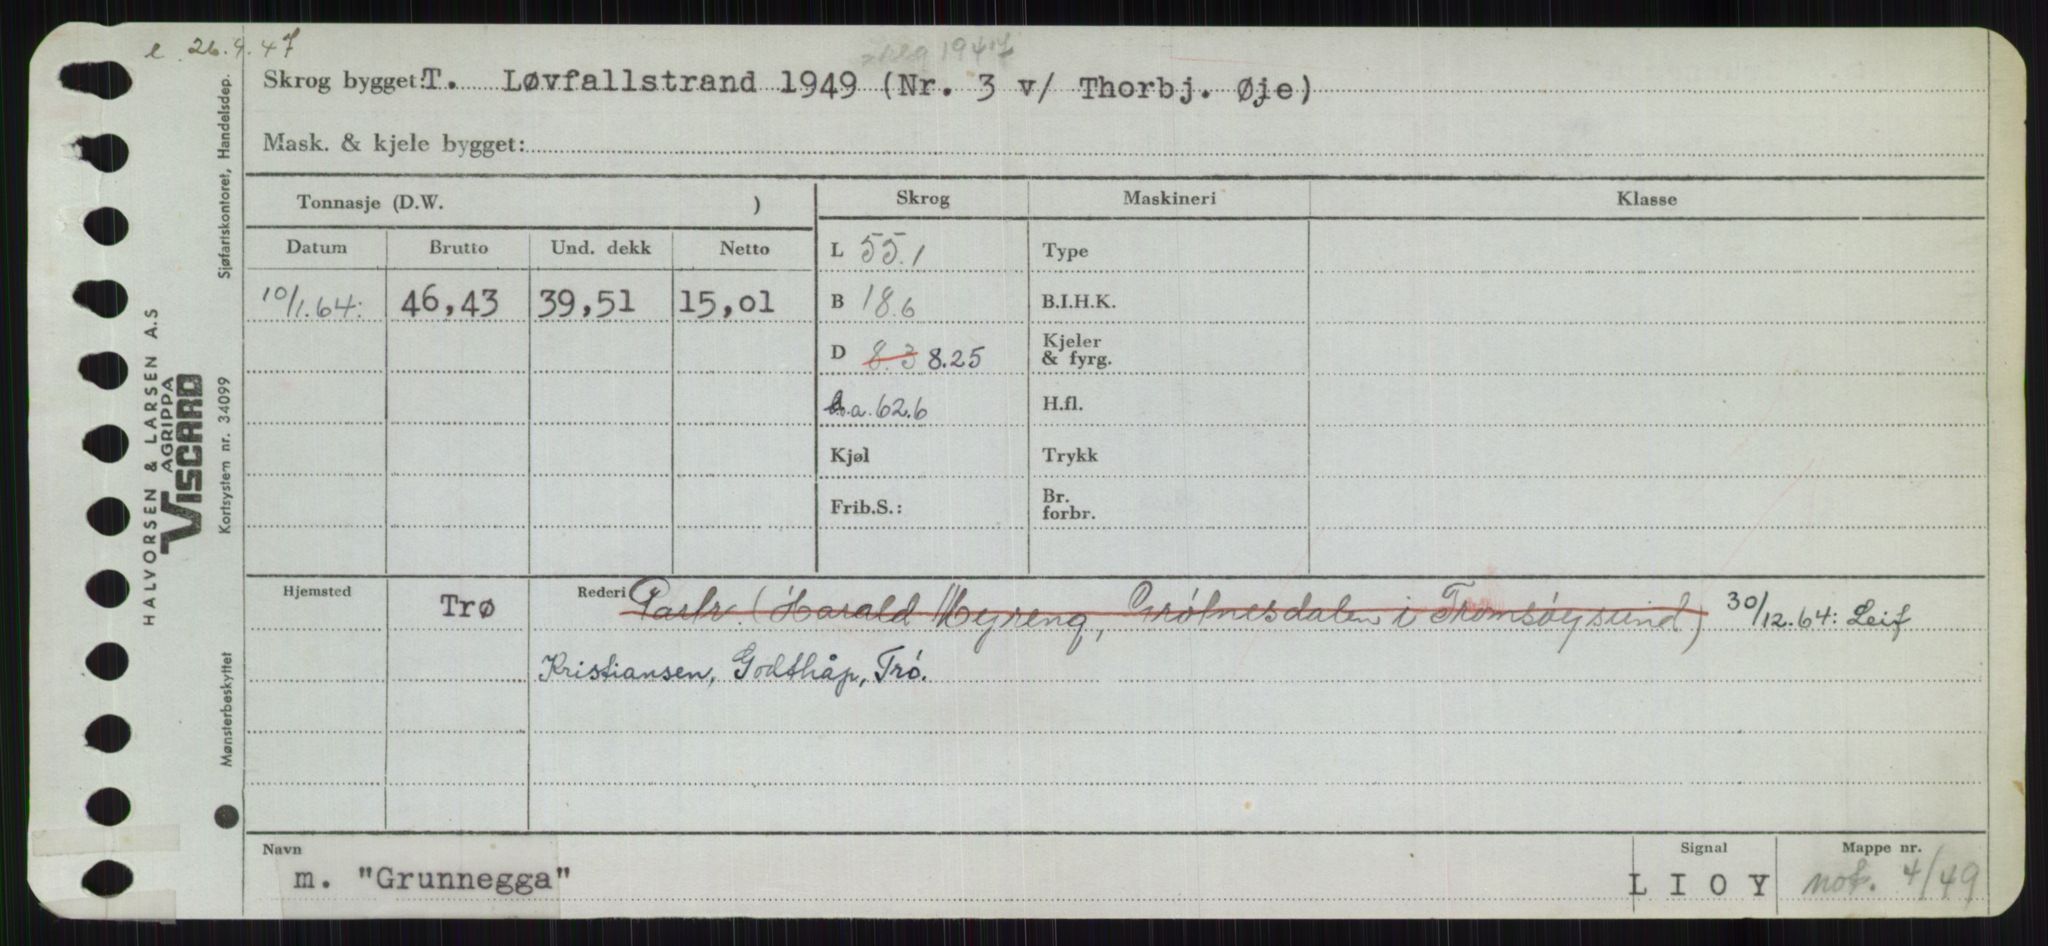 26.9.47
1947
Skrog bygget: T. Løvfallstrand 1949 (Nr. 3 v/ Thorbj. Øje)
Mask. & kjele bygget:
Tonnasje (D.W. )
Skrog
Maskineri
Klasse
Datum
Brutto
Und. dekk
Netto
10/1.64:
46,43
39,51
15,01
L 55.1
B 18.6
D 8.3 8.25
a. 62.6
Kjøl
Frib.S.:
Type
B.I.H.K.
Kjeler
& fyrg.
H.fl.
Trykk
Br.
forbr.
Hjemsted
Trø
Rederi Partr. (Harald Myreng, i Tromsøysund) 30/12.64: Leif
Kristiansen, Godthåp, Trø.
Navn
m. "Grunnegga"
Signal
L I O Y
Mappe nr.
not. 4/49
Sjøfartskontoret, Handelsdep.
Kortsystem nr. 34099
Mønsterbeskyttet
HALVORSEN & LARSEN A.S
AGRIPPA
VISCARD